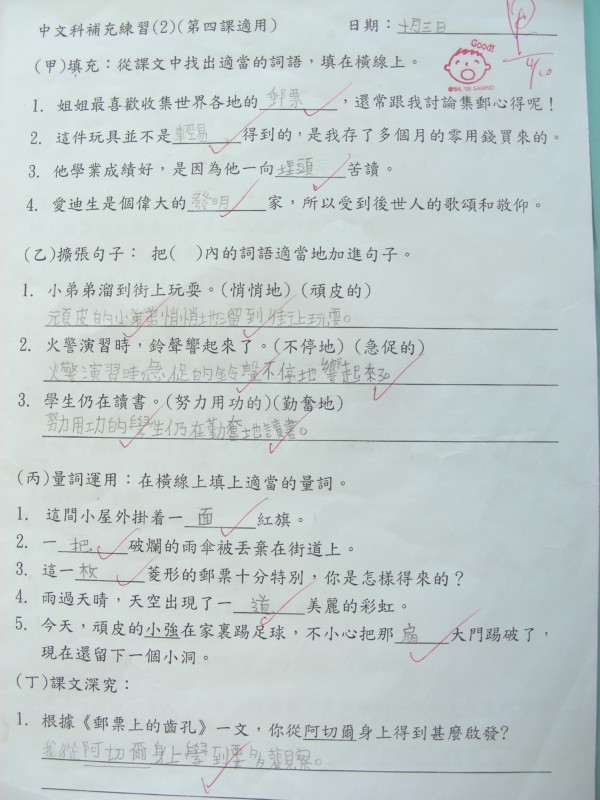 中文科補充練習(2)(第四課適用) 日期：十月三日
Good!
(甲)填充：從課文中找出適當的詞語，填在橫線上。
1. 姐姐最喜歡收集世界各地的郵票，還常跟我討論集郵心得呢！
2. 這件玩具並不是輕易得到的，是我存了多個月的零用錢買來的。
3. 他學業成績好，是因為他一向埋頭苦讀。
4. 愛迪生是個偉大的發明家，所以受到後世人的歌頌和敬仰。
(乙)擴張句子： 把( )內的詞語適當地加進句子。
1. 小弟弟溜到街上玩耍。(悄悄地) (頑皮的)
頑皮的小弟弟悄悄地溜到街上玩耍。
2. 火警演習時，鈴聲響起來了。(不停地) (急促的)
火警演習時急促的鈴聲不停地響起來了
3. 學生仍在讀書。(努力用功的)(勤奮地)
努力用功的學生仍在勤奮地讀書。
(丙)量詞運用：在橫線上填上適當的量詞。
1. 這間小屋外掛着一面紅旗。
2. 一把破爛的雨傘被丟棄在街道上。
3. 這一枚菱形的郵票十分特別，你是怎樣得來的？
4. 雨過天晴，天空出現了一道美麗的彩虹。
5. 今天，頑皮的小強在家裏踢足球，不小心把那扇大門踢破了，
現在還留下一個小洞。
(丁)課文深究：
1. 根據《郵票上的齒孔》一文，你從阿切爾身上得到甚麼啟發?
我從阿切爾身上學到要多觀察。